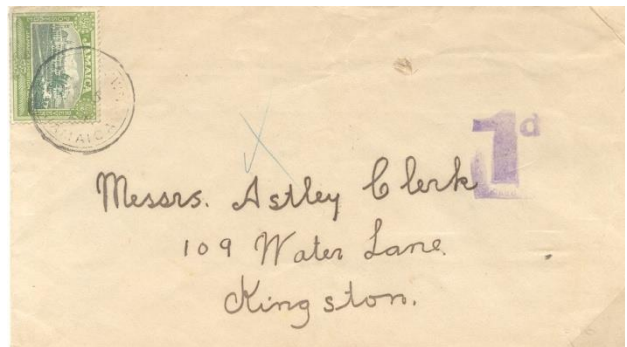 JAMAICA
JAMAICA
1d
Messrs. Astley Clerk
109 Water Lane.
Kingston.